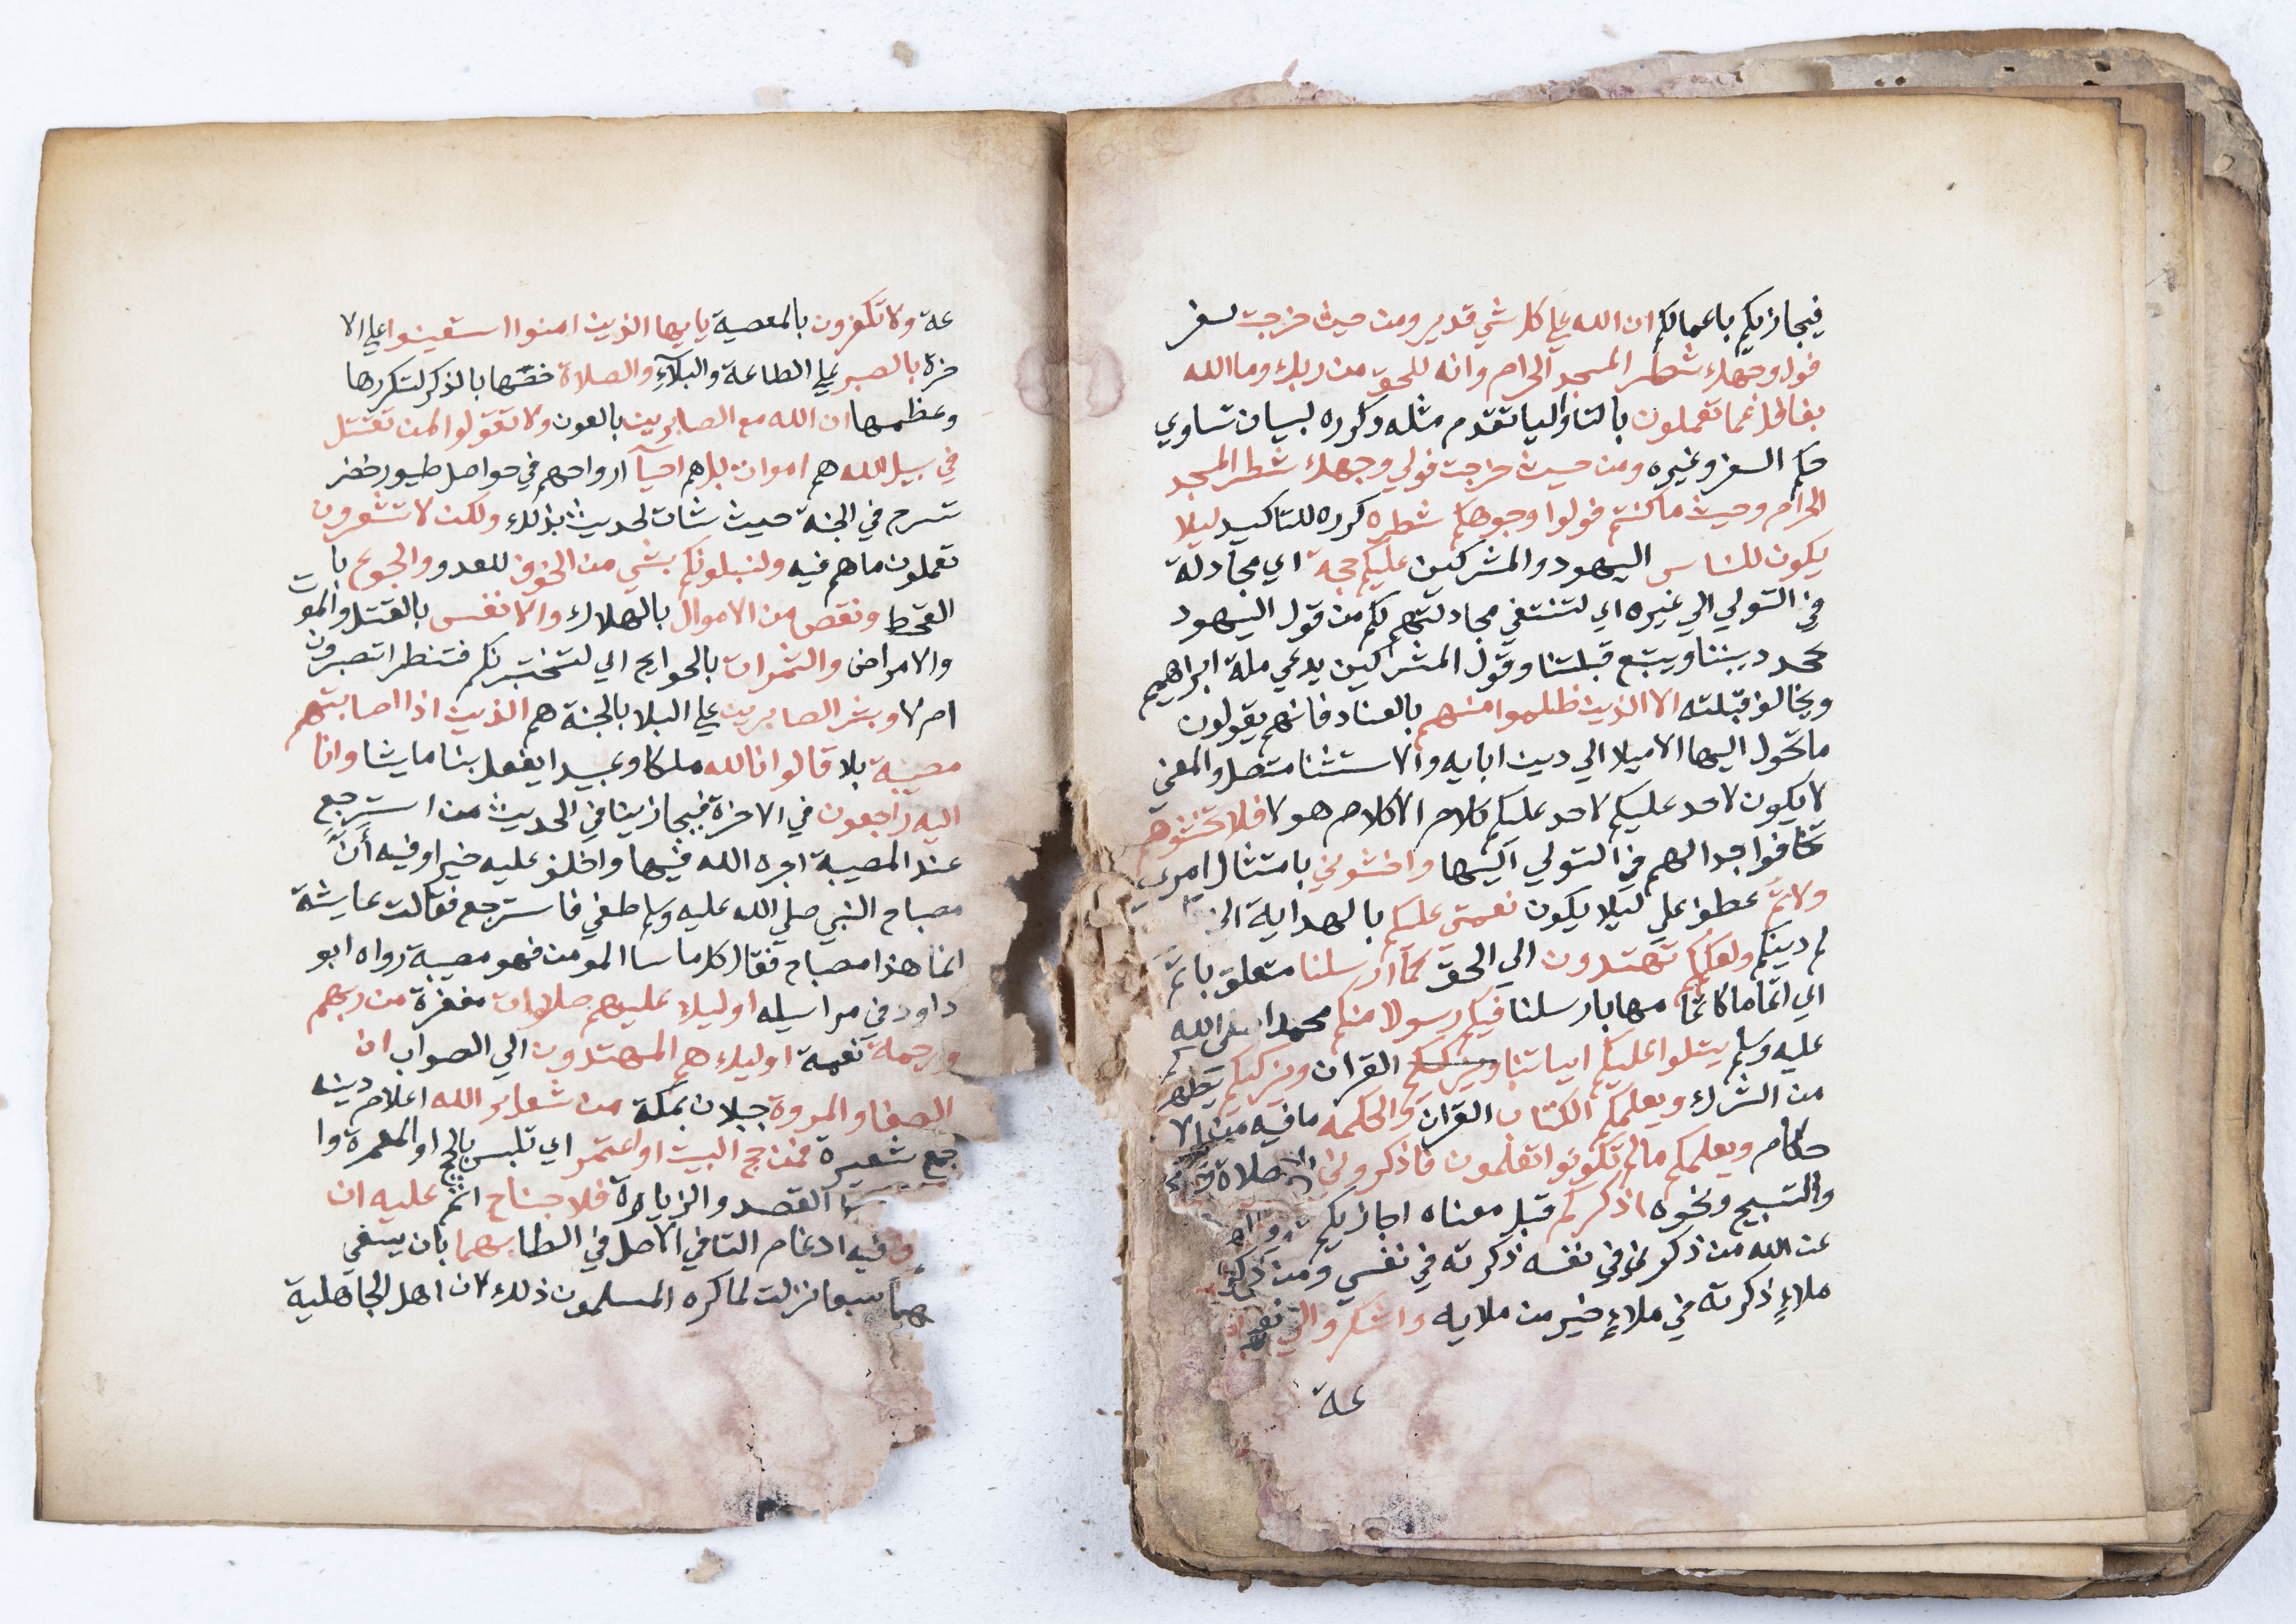 فيجازيكم باعمالكم ان الله علي كل شي قدير ومن حيث خرجت لسفر
فول وجهك شطر المسجد الحرام وانه للحق من ربك وما الله
بغافل عما تعملون بالتا واليا تقدم مثله وكرره لبيان تساوي
حكم السفر وغيره ومن حيث خرجت فولي وجهك شطر المسجد
الحرام وحيث ما كنتم فولوا وجوهكم شطره كرره للتاكيد ليلا
يكون للناس اليهود والمشركين عليكم حجة اي مجادلة
في التولي الي غيره اي لتنتفي مجادلتهم لكم من قول اليهود
يجحد ديننا ويتبع قبلتنا وقول المشركين يدعي ملة ابراهيم
ويخالف قبلته الا الذين ظلموا منهم بالعناد فانهم يقولون
ما تحول اليها الا ميلا الي دين ابايه والاستثنا متصل والمعني
لا يكون لاحد عليكم لاحد عليكم كلام الا كلام هولا فلا تخشوهم
تخافوا جدالهم في التولي اليها واخشوني بامتثال امري
ولاتم عطف علي ليلا يكون نعمتي عليكم بالهداية الي
لم دينكم ولعلكم تهتدون الي الحق كما ارسلنا متعلق باتم
اي اتماما كاتمامها بارسلنا فيكم رسولا منكم محمدا صلي الله
عليه وسلم يتلوا عليكم اياتنا ويزكيكم القران ويزكيكم يطهركم
من الشرك ويعلمكم الكتاب القران والحكمه ما فيه من الا
حكام ويعلمكم ما لم تكونوا تعلمون فاذكروني بالصلاة
والتسبيح ونحوه اذكركم قيل معناه اجازيكم
عن الله من ذكرني في نفسه ذكرته في نفسي ومن ذكرني
ملاءٍ ذكرته في ملاءٍ خير من ملايه واشكروا لي
عة
عة ولا تكفرون بالمعصية يايها الذين امنوا استعينوا علي الا
خرة بالصبر علي الطاعة والبلآء والصلاة خصّها بالذكر لتكررها
وعظمها ان الله مع الصابرين بالعون ولا تقولوا لمن تقتل
في سبيل الله هم اموات بل هم احيآ ارواحهم في حواصل طيور خضر
تسرح في الجنة حيث شات لحديث بذلك ولكن لا تشعرون
تعملون ما هم فيه ولنبلونكم بشي من الخوف للعدو والجوع با
القحط ونقص من الاموال بالهلاك والانفس بالقتل والموت
والامراض والثمرات بالحوايج اي لنختبرنكم فتنظر اتصبرون
ام لا وبشر الصابرين علي البلا بالجنة هم الذين اذا اصابتهم
مصيبة بلا قالوا انا لله ملكا وعبيدا يفعل بنا ما يشا وانا
اليه راجعون في الاخرة فيجازينا في الحديث من استرجع
عند المصيبة اجره الله فيها واخلف عليه خيرا وفيه أنّ
مصباح النبي صلي الله عليه وسلم طفي فاسترجع فقالت عايشة
انما هذا مصباح فقال كل ما سا المومن فهو مصيبة رواه ابو
داود في مراسيله اوليك عليهم صلوات مغفرة من ربهم
ورحمة نعمة اوليك هم المهتدون الي الصواب ان
الصفا والمروة جبلان بمكة من شعاير الله اعلام دينه
جمع شعيرة فمن حج البيت او اعتمر اي تلبس بالحج او المعمرة وا
القصد والزيارة فلا جناح اثم عليه ان
فيه ادغام التا في الاصل في الطا بهما بان يسعي
بينهما سبعا نزلت لما كره المسلمون ذلك لان اهل الجاهلية